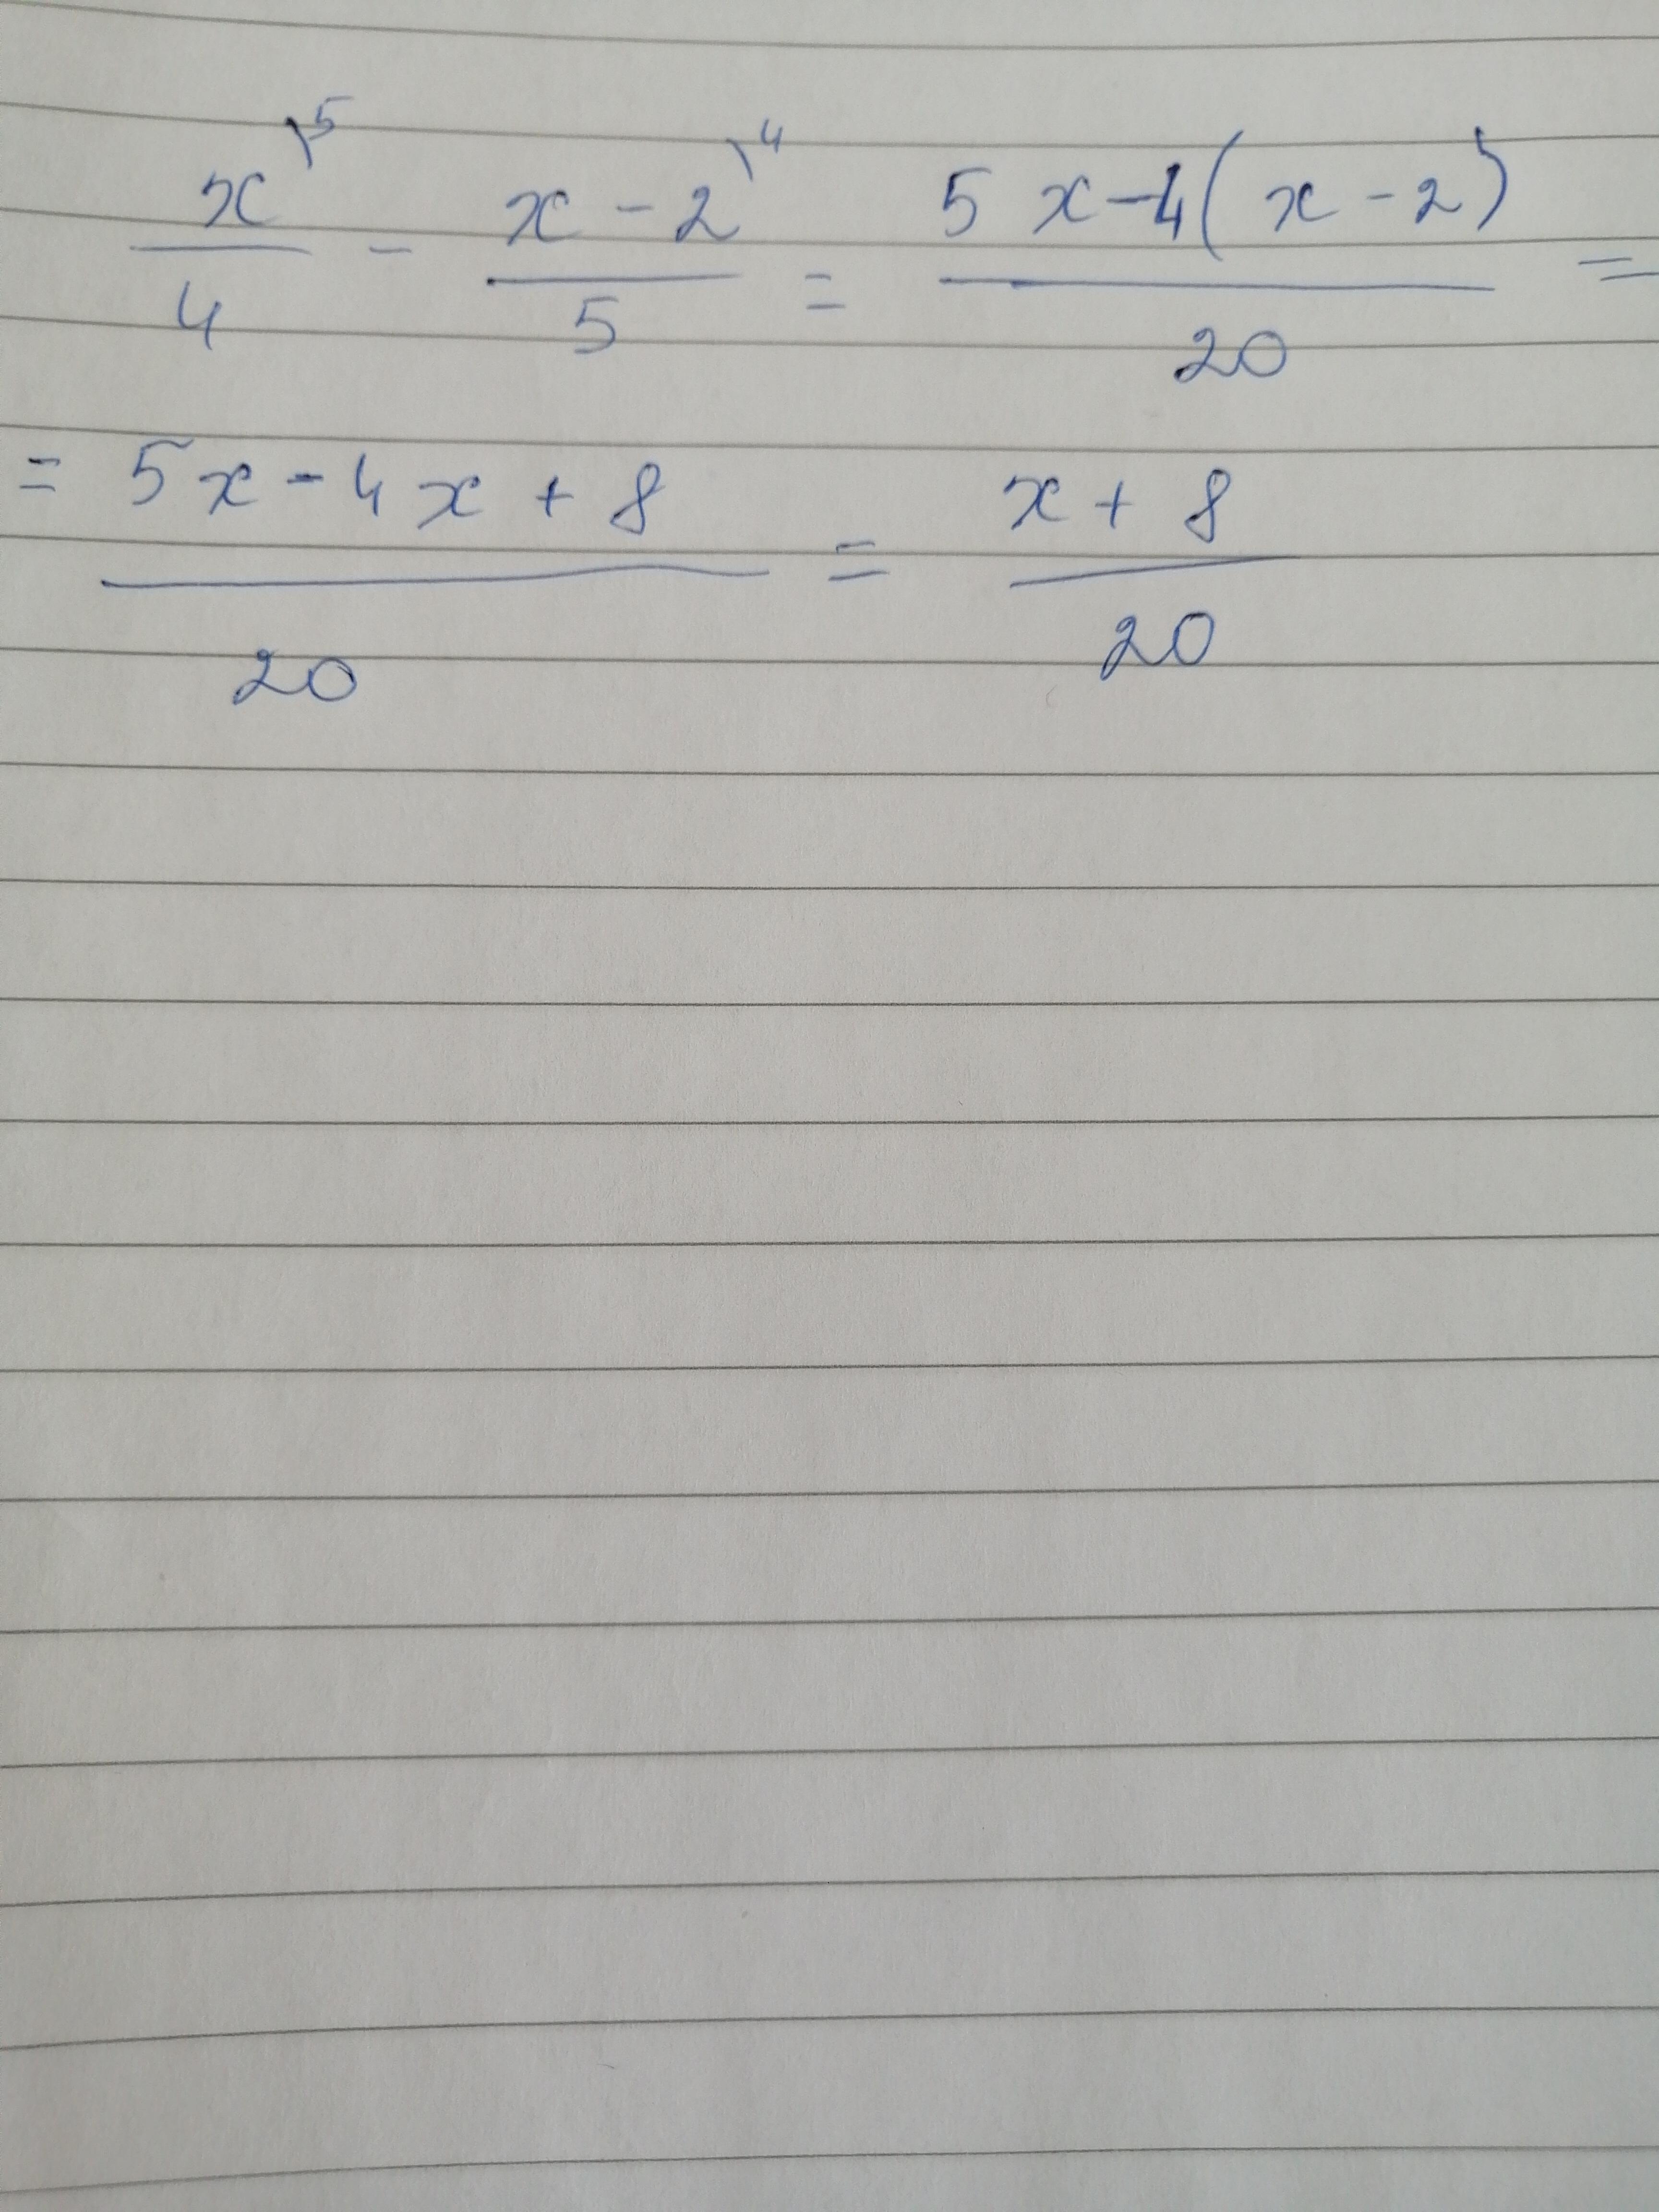 x\5/4 - x-2\4/5 = 5x-4(x-2)/20 =
= 5x-4x+8/20 = x+8/20